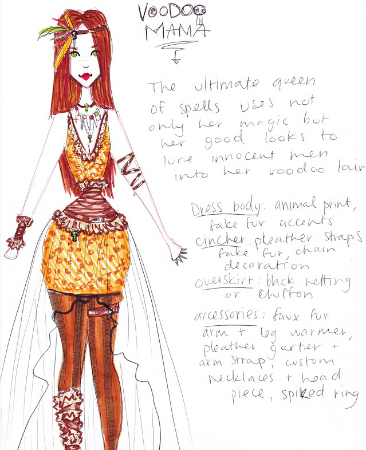 VOODOO
MAMA
The ultimate queen
of spells uses not
only her magic but
her good looks to
lure innocent men
into her voodoo lair
Dress body: animal print,
fake fur accents
cincher: pleather straps
fake fur, chain
decoration
overskirt: black netting
or chiffon
accessories: faux fur
arm + leg warmer,
pleather garter +
arm strap, custom
necklaces + head
piece, spiked ring